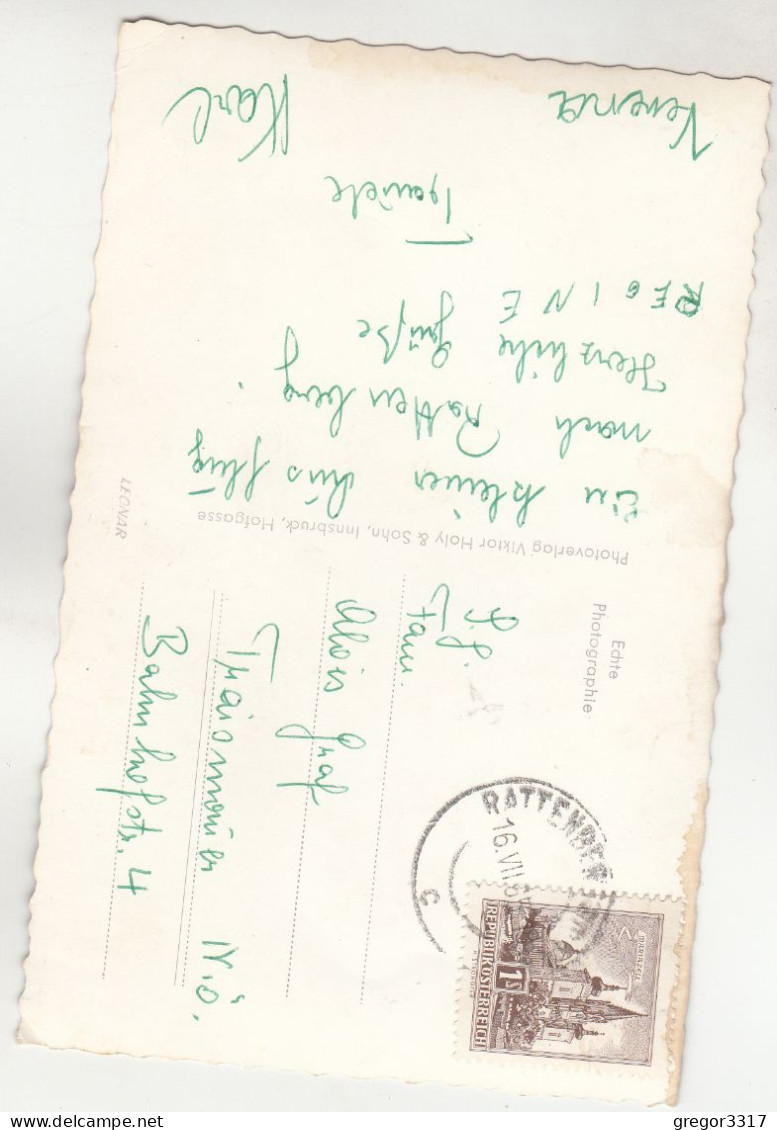 Ein kleiner Ausflug
nach Rattenberg.
Herzliche Grüße
REGINE
Traudl
Verena
Karl
Photoverlag Viktor Holy & Sohn, Innsbruck, Hofgasse
LEONAR
Echte
Photographie
Fam
Alois Graf
Traismauer N.Ö.
Bahnhofstr. 4
RATTENBERG
16.VII.6
c
REPUBLIK ÖSTERREICH
1 S
MARIAZELL
gregor3317